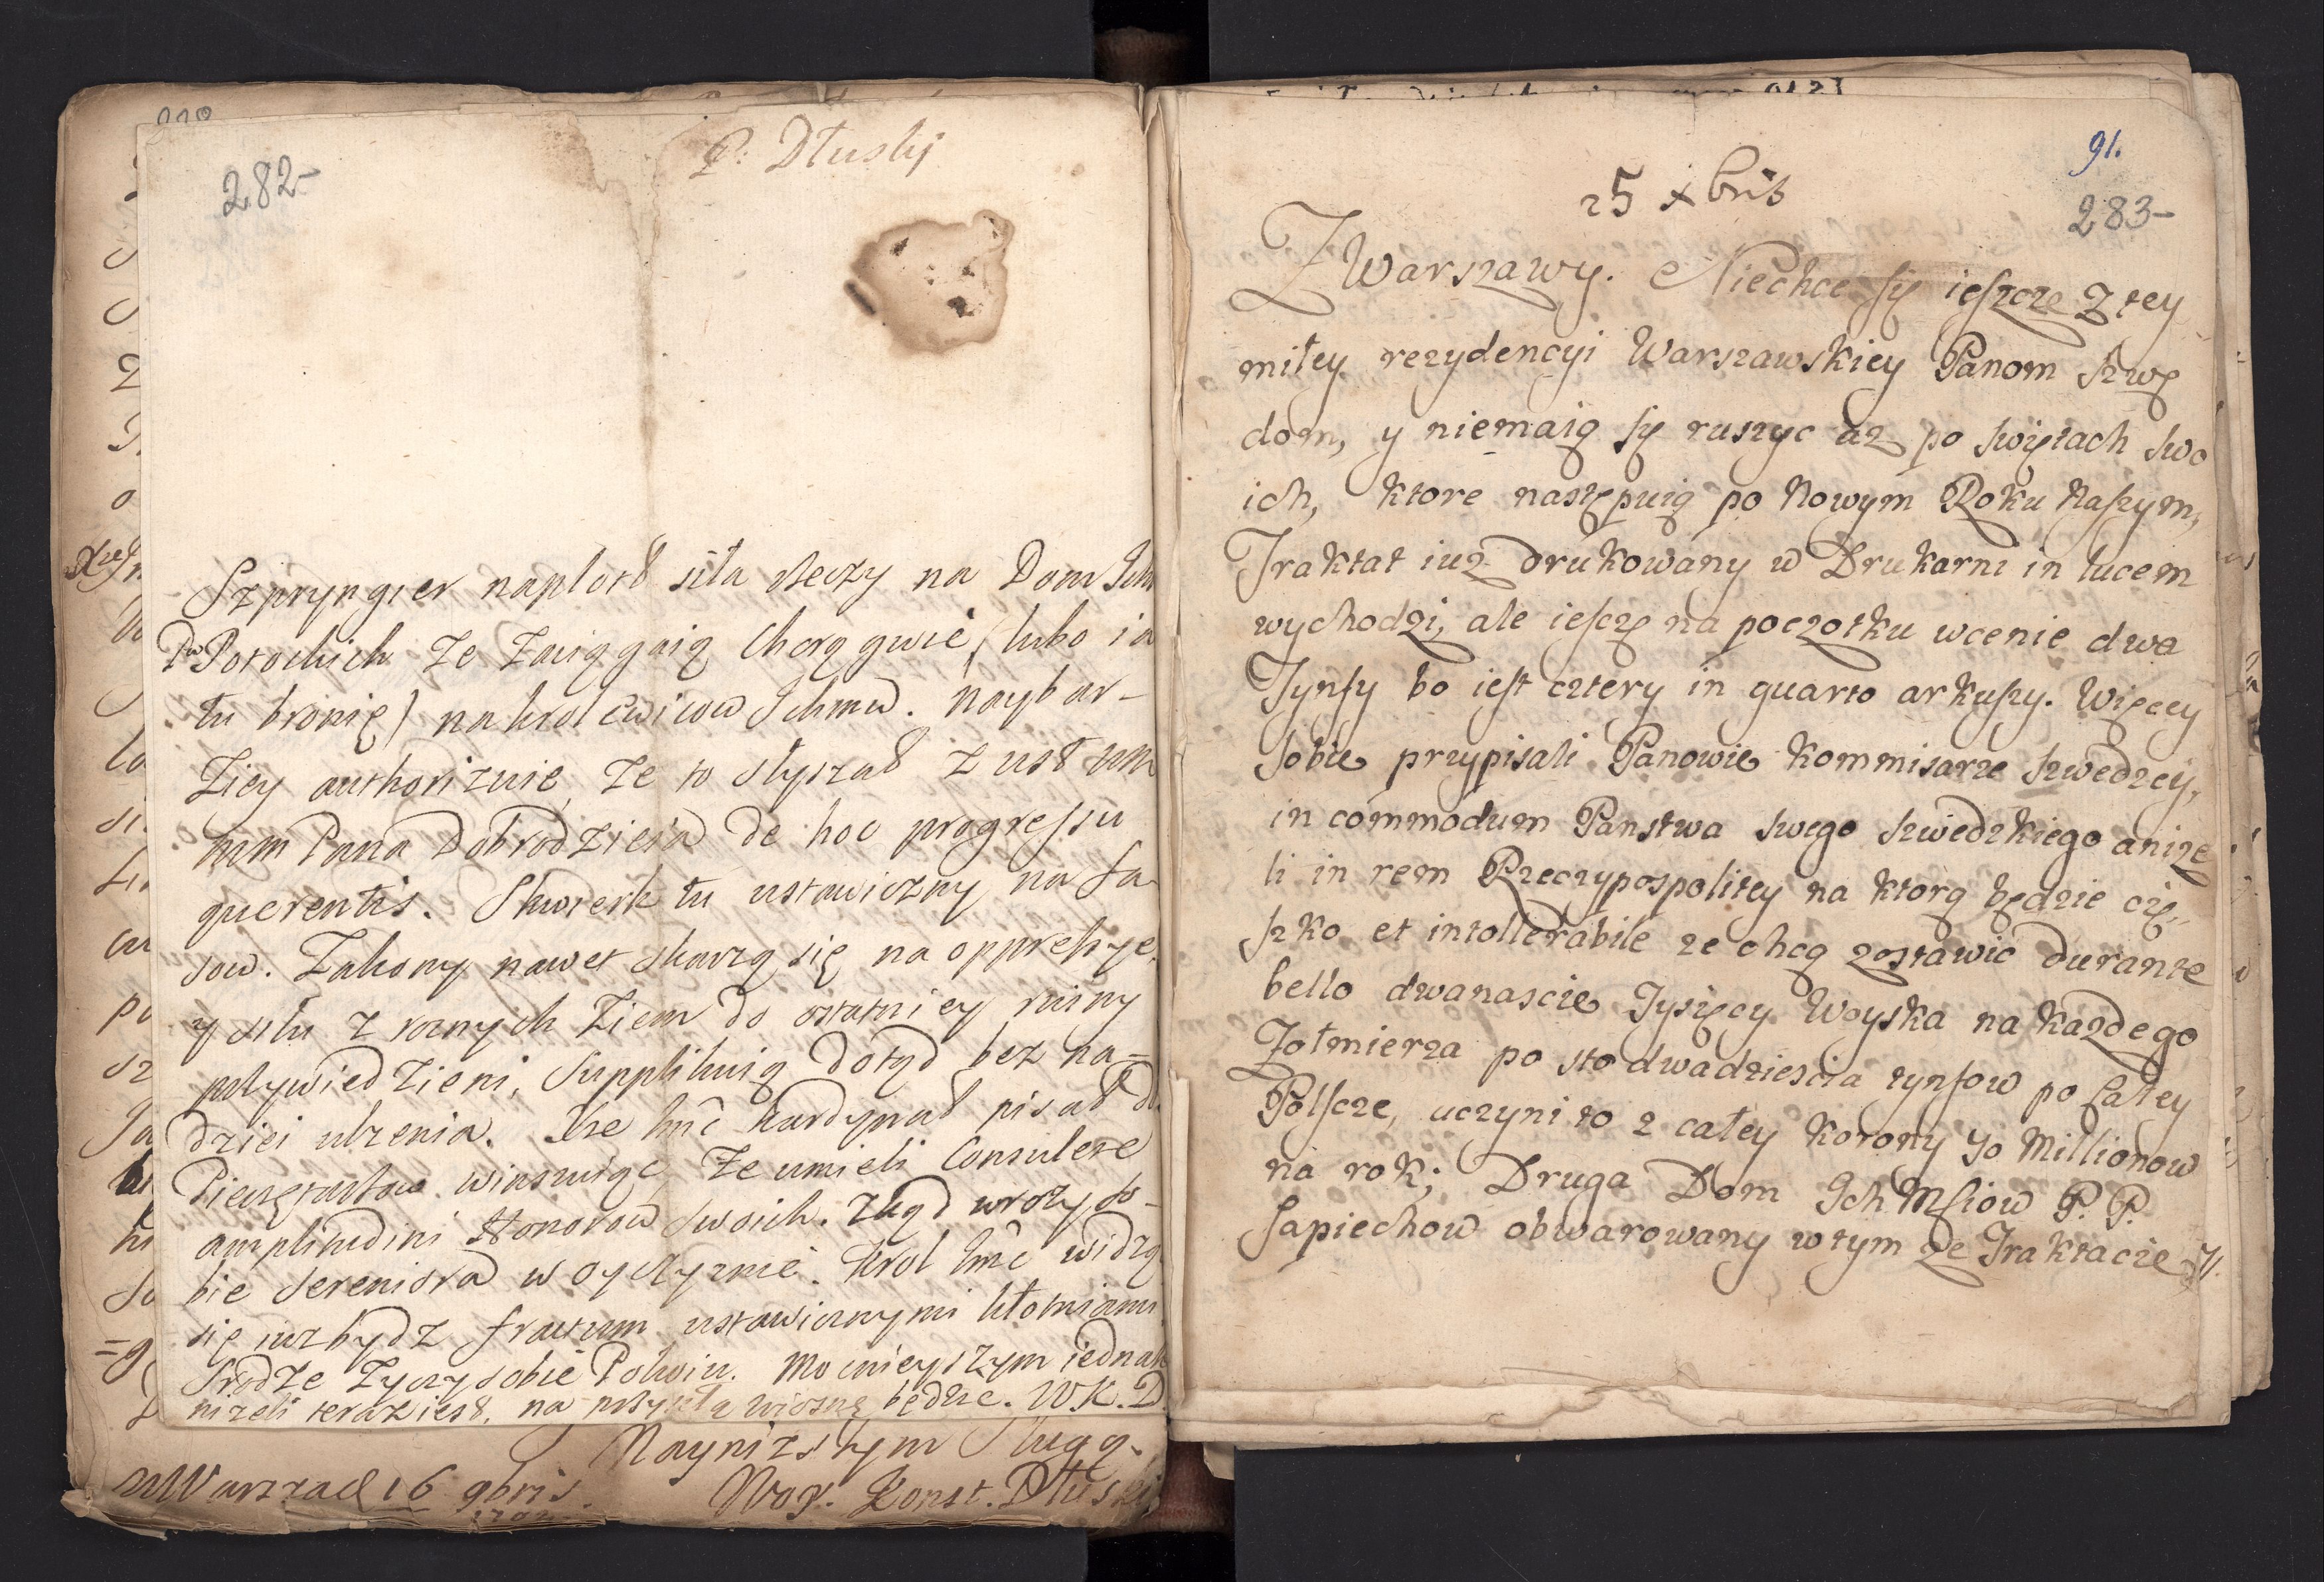 282-
P. Dłuski
Szpryngier naplotł siła rzeczy na Dom Ich
Potockich że zaciągaią Chorągwie (lubo ia
tu bronię) na krolewicow Ichmw. naybar-
ziey authorizuie, że to słyszał z ust
Pana Dobrodzieia de hoc progressu
querentis. Skwierk tu ustawiczny na Sa-
sow. Zakony nawet skarzą się na oppressye,
y siła z roznych Ziem do ostatniey ruiny
przywiedzieni, supplikuią dotąd bez na-
dziei ulzenia. Xze Imc kardynał pisał do
winszuiąc że umieli Consulere
amplitudini Honorow swoich. Ztąd wrozy so-
bie sereniora w Oyczyznie. Krol Imc widzą
się iuz bydz fractum ustawicznymi kłotniami
srodze zyczy sobie Pokoiu. Mocnieyszym iednak
nizeli teraz iest, na przyszłą wiosnę będzie. W.K.D.
Naynizszym sługą.
w Warszae 16 9bris.
1702
Konst. Dłuski
91.
283-
25 xbris
Z Warszawy. Niechce sę ieszcze z tey
miłey rezydencyi Warszawskiey Panom szwę
dom, y niemaią sę ruszyc az po swiętach swo
ich, ktore następuią po Nowym Roku Naszym,
Traktat iuz drukowany w Drukarni in lucem
wychodzi, ale iescze na początku wcenie dwa
Tynfy bo iest cztery in quarto arkuszy. Więcey
sobie przypisali Panowie Kommisarze szwedzcy,
in commodum Panstwa swego szwedzkiego anize
li in rem Rzeczypospolitey na ktorą będzie cię-
szko et intollerabile ze chcą zostawic durante
bello dwanascie Tysięcy Woyska na kazdego
Zołmierza po sto dwadziescia tynfow po całey
Polscze, uczyni to z całey Korony 30 Millionow
na rok; Druga Dom Ich Msciow P. P.
Sapiechow obwarowany wtym ze Traktacie